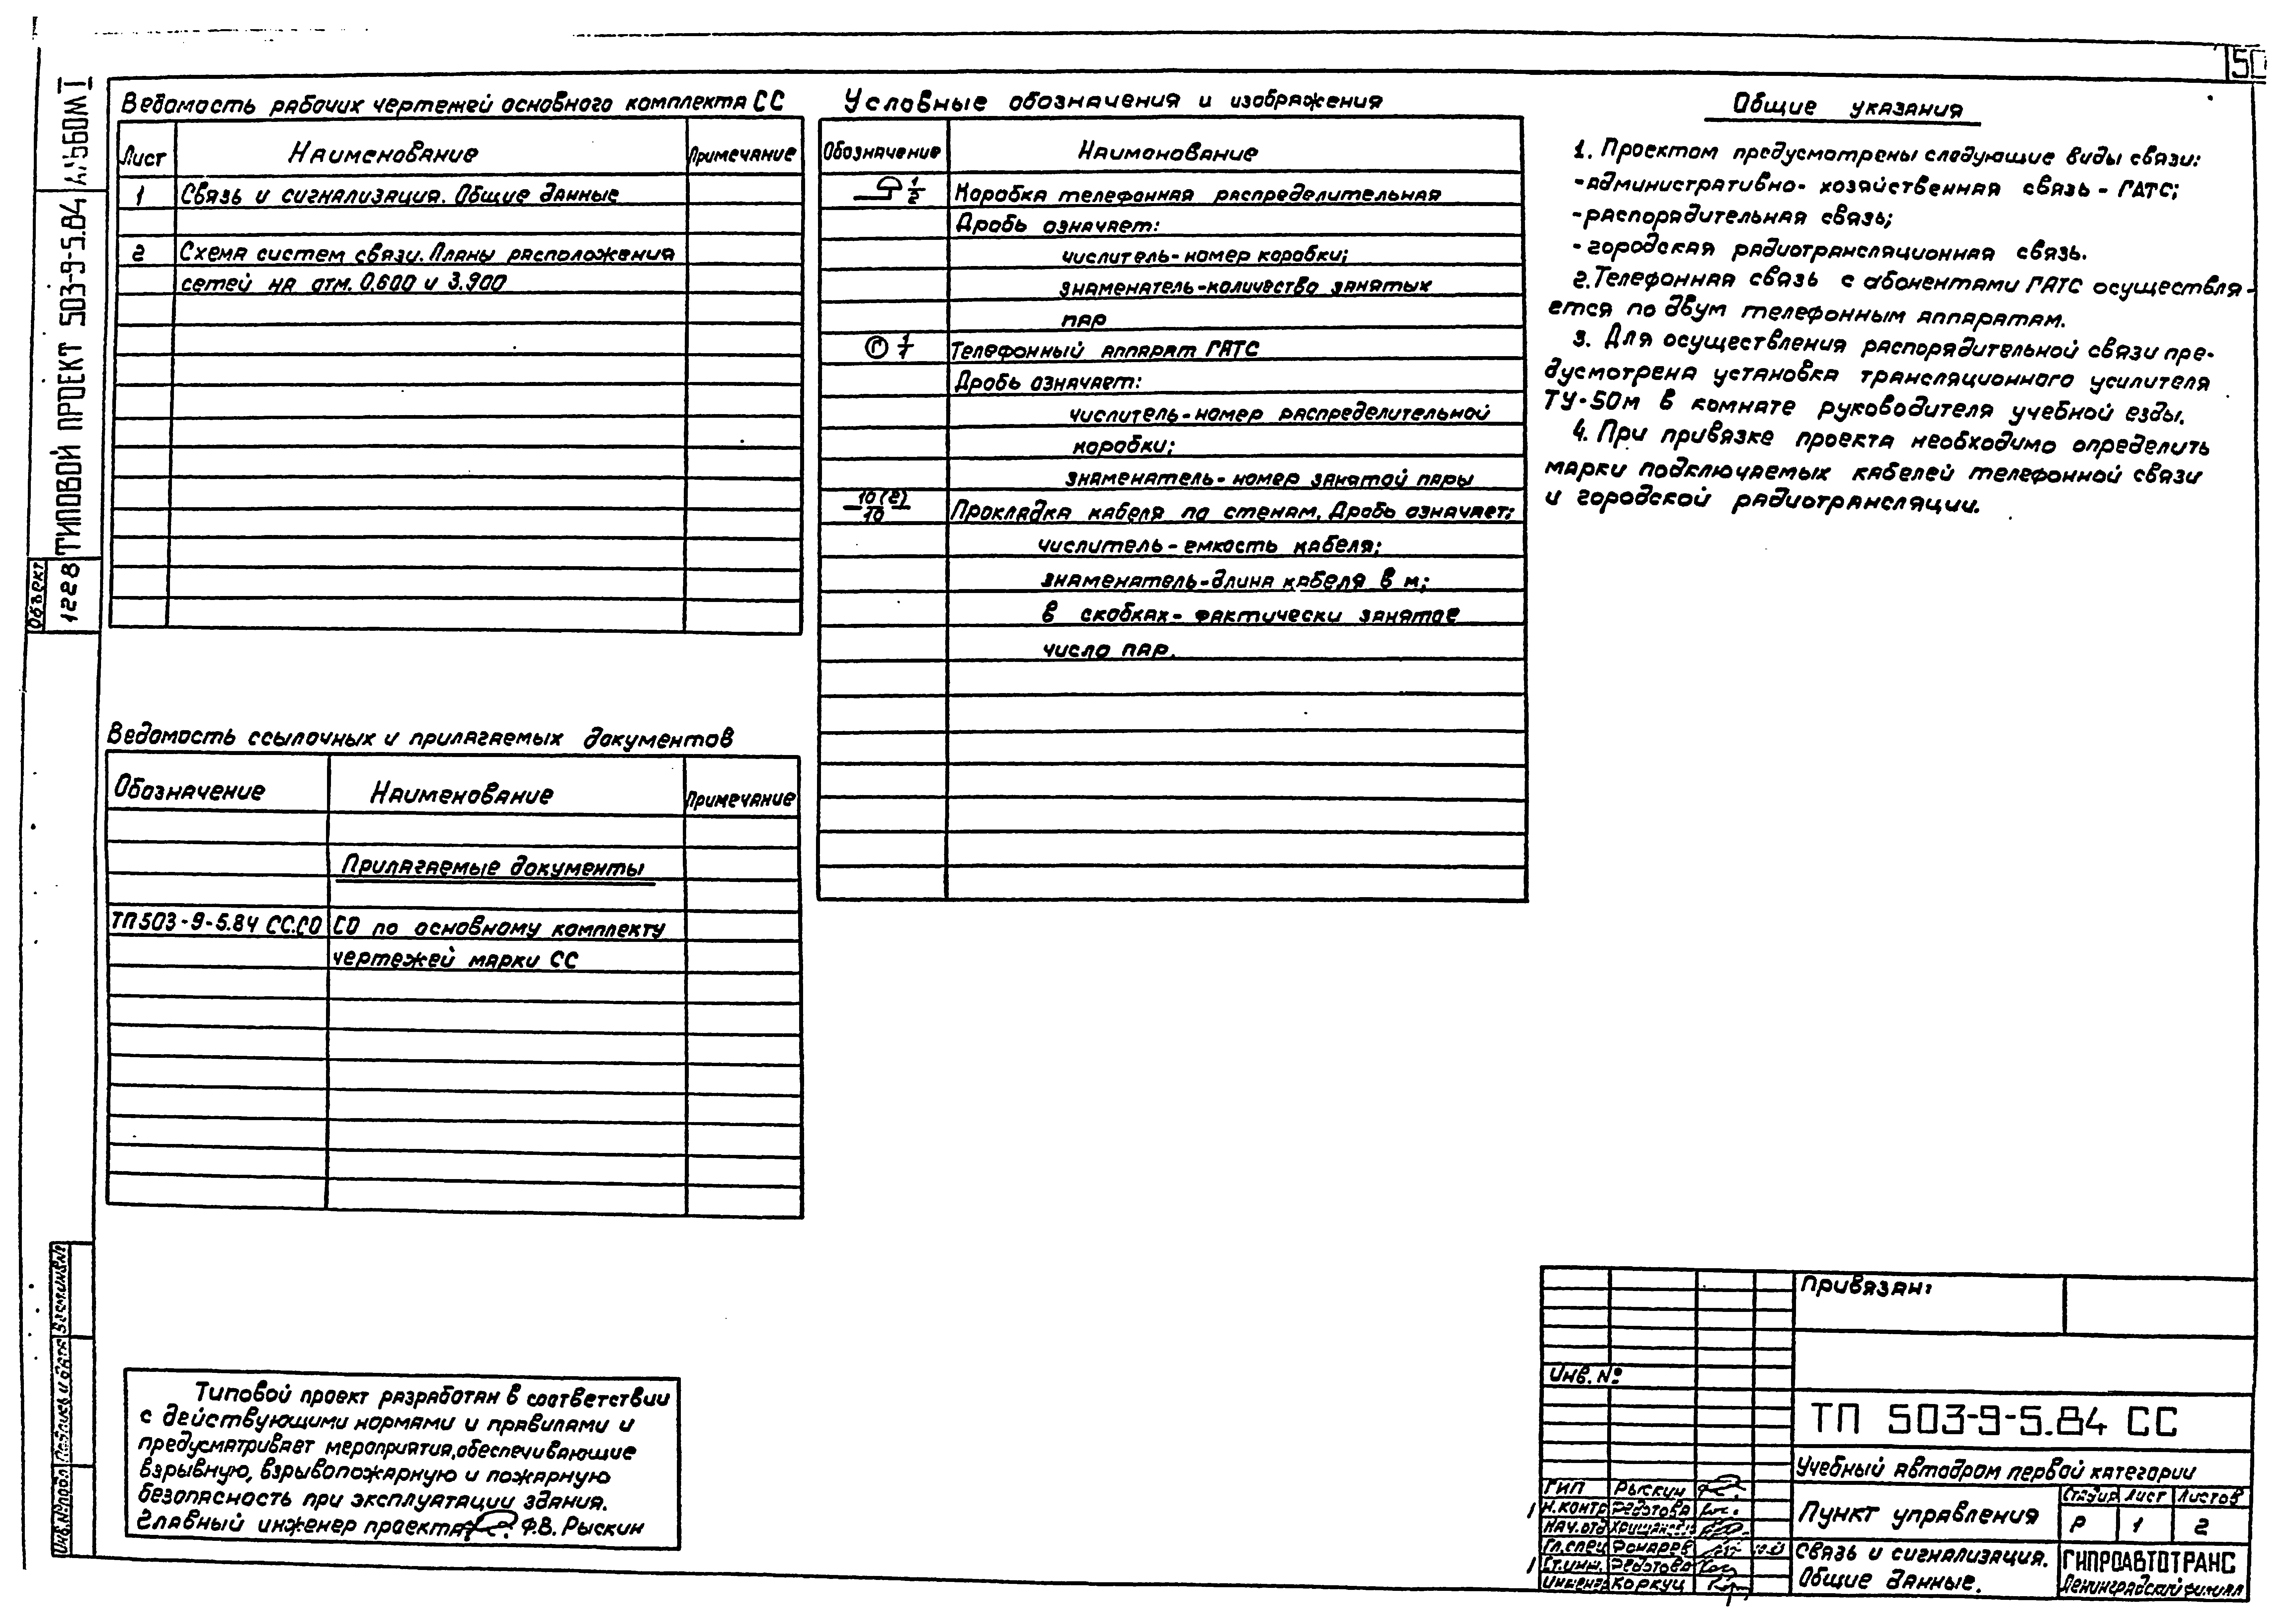 50
АЛЬБОМ I
ТИПОВОЙ ПРОЕКТ 503-9-5.84
Объект
1228
Ведомость рабочих чертежей основного комплекта СС
Лист Наименование Примечание
1 Связь и сигнализация. Общие данные
2 Схема систем связи. Планы расположения
сетей на отм. 0.600 и 3.900
Ведомость ссылочных и прилагаемых документов
Обозначение Наименование Примечание
Прилагаемые документы
ТП503-9-5.84 СС.СО СО по основному комплекту
чертежей марки СС
Условные обозначения и изображения
Обозначение Наименование
1/2 Коробка телефонная распределительная
Дробь означает:
числитель-номер коробки;
знаменатель-количество занятых
пар
Г 1/1 Телефонный аппарат ГАТС
Дробь означает:
числитель-номер распределительной
коробки;
знаменатель-номер занятой пары
10(2)/10 Прокладка кабеля по стенам. Дробь означает:
числитель-емкость кабеля;
знаменатель-длина кабеля в м;
в скобках-фактически занятое
число пар.
Общие указания
1. Проектом предусмотрены следующие виды связи:
-административно-хозяйственная связь-ГАТС;
-распорядительная связь;
-городская радиотрансляционная связь.
2. Телефонная связь с абонентами ГАТС осуществля-
ется по двум телефонным аппаратам.
3. Для осуществления распорядительной связи пре-
дусмотрена установка трансляционного усилителя
ТУ-50м в комнате руководителя учебной езды.
4. При привязке проекта необходимо определить
марки подключаемых кабелей телефонной связи
и городской радиотрансляции.
Типовой проект разработан в соответствии
с действующими нормами и правилами и
предусматривает мероприятия, обеспечивающие
взрывную, взрывопожарную и пожарную
безопасность при эксплуатации здания.
Главный инженер проекта Ф.В. Рыскин
Инв.№подл. Подпись и дата Взам.инв.№
Привязан:
Инв. №
ТП 503-9-5.84 СС
Учебный автодром первой категории
ГИП Рыскин
Н.контр Федотова
Нач.отд
Гл.спец Фонарев
Ст.инж. Федотова
Инженер Коркуц
Пункт управления
Стадия Лист Листов
Р 1 2
Связь и сигнализация.
Общие данные.
ГИПРОАВТОТРАНС
Ленинградский филиал